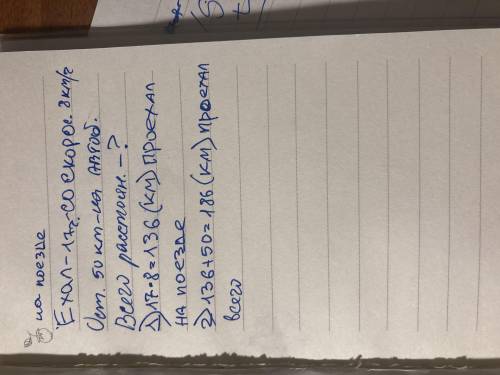 на поезде
Ехал - 17ч. со скорос. 8 км/ч
Ост. 50 км - на автоб.
Всего расстоян. - ?
1) 17·8=136 (км) проехал
на поезде
2) 136+50=186 (км) проехал
всего